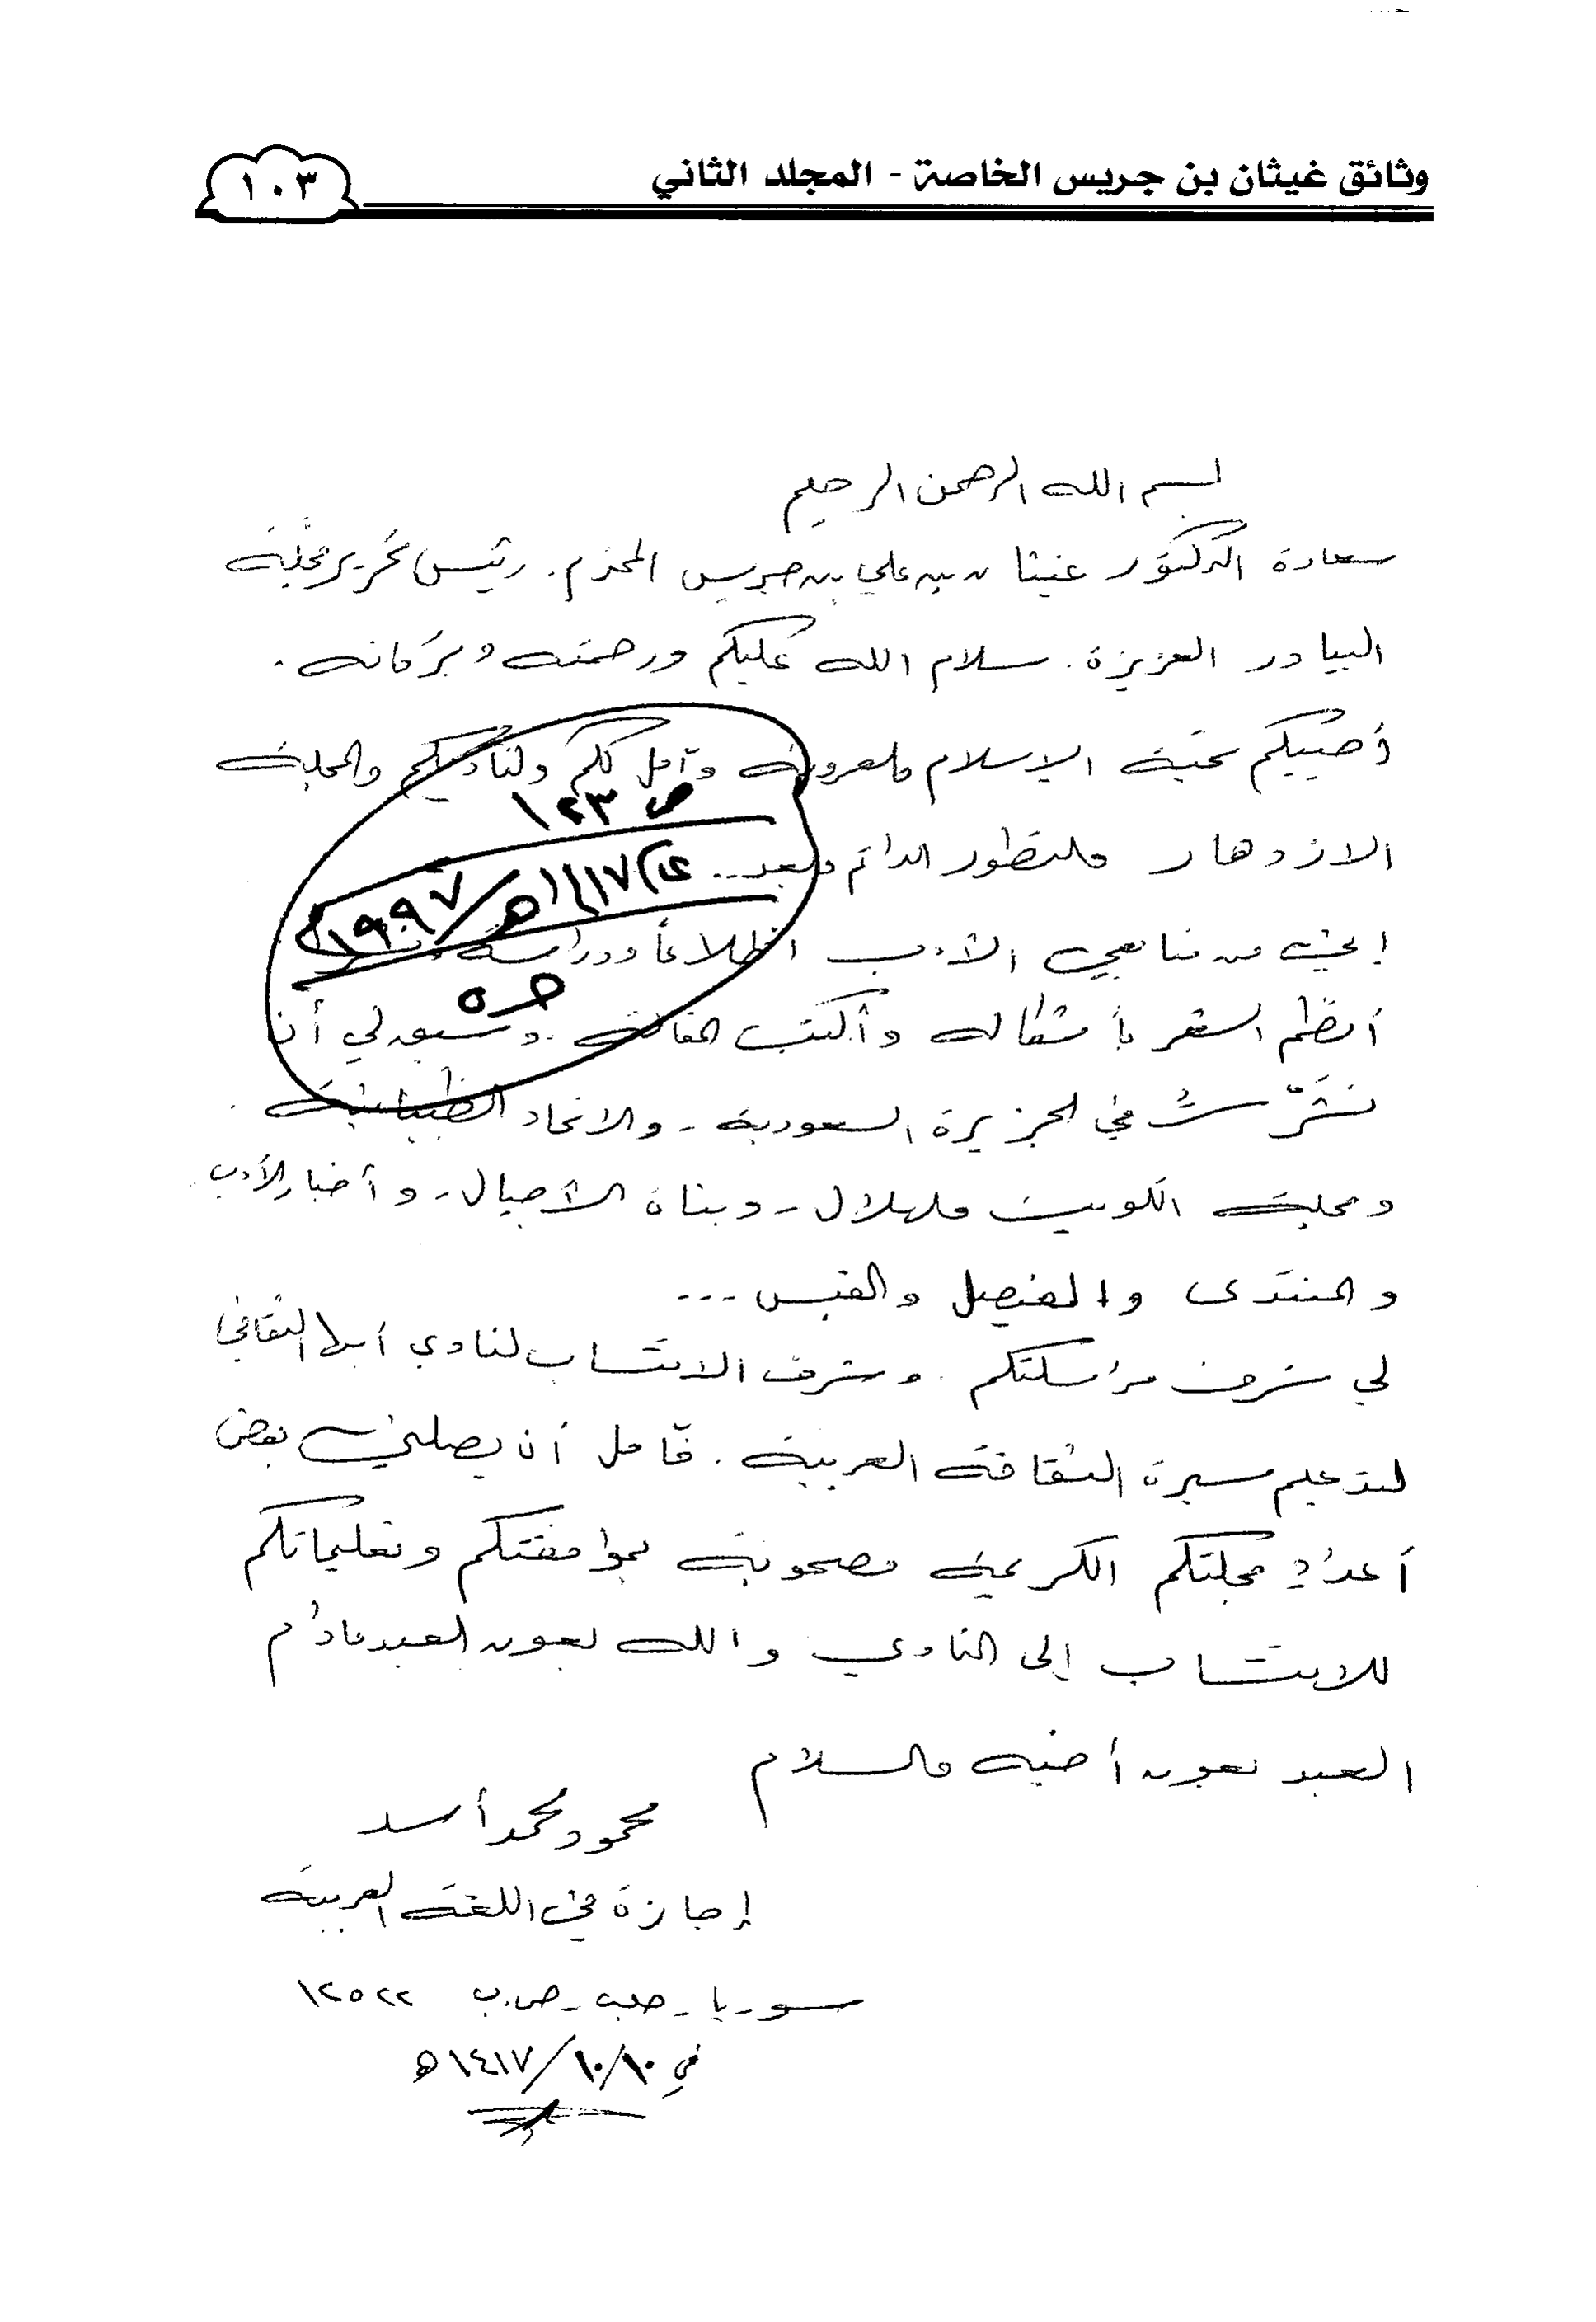 وثائق غيثان بن جريس الخاصة - المجلد الثاني
١٠٣
بسم الله الرحمن الرحيم
سعادة الدكتور غيثان بن علي بن جريس المحترم. رئيس تحرير مجلة
البيادر العزيزة. سلام الله عليكم ورحمته وبركاته.
أحييكم تحية الإسلام والعروبة وآمل لكم ولناديكم والمجلة
ص ١٢٣
الازدهار والتطور الدائم وبعد..
١٩٩٧م
إنني من متابعي الأدب اطلاعاً ودراسة
أنظم الشعر بأشكاله وأكتب المقالة. وسبق لي أن
نشرت في الجزيرة السعودية - والاتحاد الظبيانية.
ومجلة الكويت والهلال - وبناة الأجيال - وأخبار الأدب
والمنتدى والفيصل والقبس ...
لي شرف مراسلتكم. وشرف الانتساب لنادي أبها الثقافي
لتدعيم مسيرة الثقافة العربية. فآمل أن يصلني بعض
أعداد مجلتكم الكريمة مصحوبة بموافقتكم وتعليماتكم
للانتساب إلى النادي والله بعون العبد مادام
العبد بعون أخيه والسلام
محمود محمد أسد
إجازة في اللغة العربية
سوريا - حلب - ص.ب ١٢٥٢٢
في ١٠/١٠/١٤١٧ه